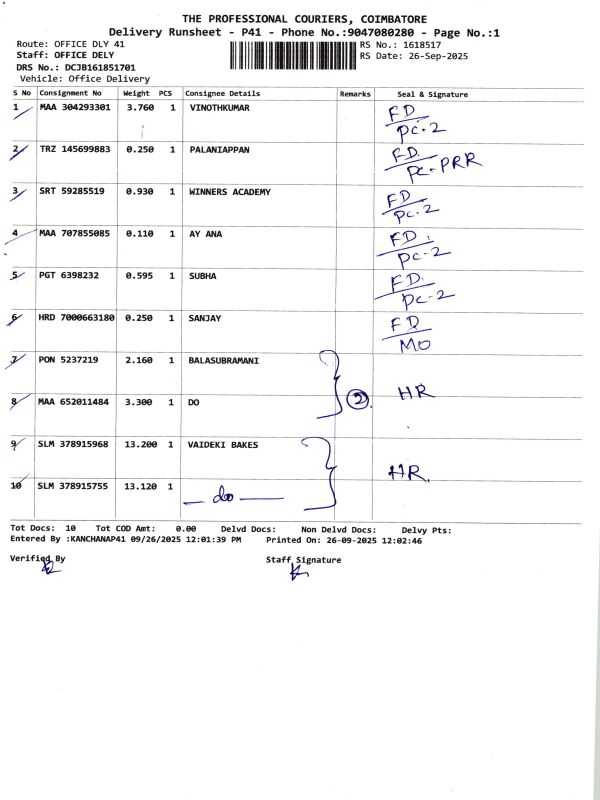 THE PROFESSIONAL COURIERS, COIMBATORE
Delivery Runsheet - P41 - Phone No.:9047080280 - Page No.:1
Route: OFFICE DLY 41 RS No.: 1618517
Staff: OFFICE DELY RS Date: 26-Sep-2025
DRS No.: DCJB161851701
Vehicle: Office Delivery
S No Consignment No Weight PCS Consignee Details Remarks Seal & Signature
1 MAA 304293301 3.760 1 VINOTHKUMAR FD
PC-2
2 TRZ 145699883 0.250 1 PALANIAPPAN FD
PC-PRR
3 SRT 59285519 0.930 1 WINNERS ACADEMY FD
PC-2
4 MAA 707855085 0.110 1 AY ANA FD
PC-2
5 PGT 6398232 0.595 1 SUBHA FD
PC-2
6 HRD 7000663180 0.250 1 SANJAY FD
MO
7 PON 5237219 2.160 1 BALASUBRAMANI
8 MAA 652011484 3.300 1 DO 2 HR
9 SLM 378915968 13.200 1 VAIDEKI BAKES
HR.
10 SLM 378915755 13.120 1 — do —
Tot Docs: 10 Tot COD Amt: 0.00 Delvd Docs: Non Delvd Docs: Delvy Pts:
Entered By :KANCHANAP41 09/26/2025 12:01:39 PM Printed On: 26-09-2025 12:02:46
Verified By Staff Signature